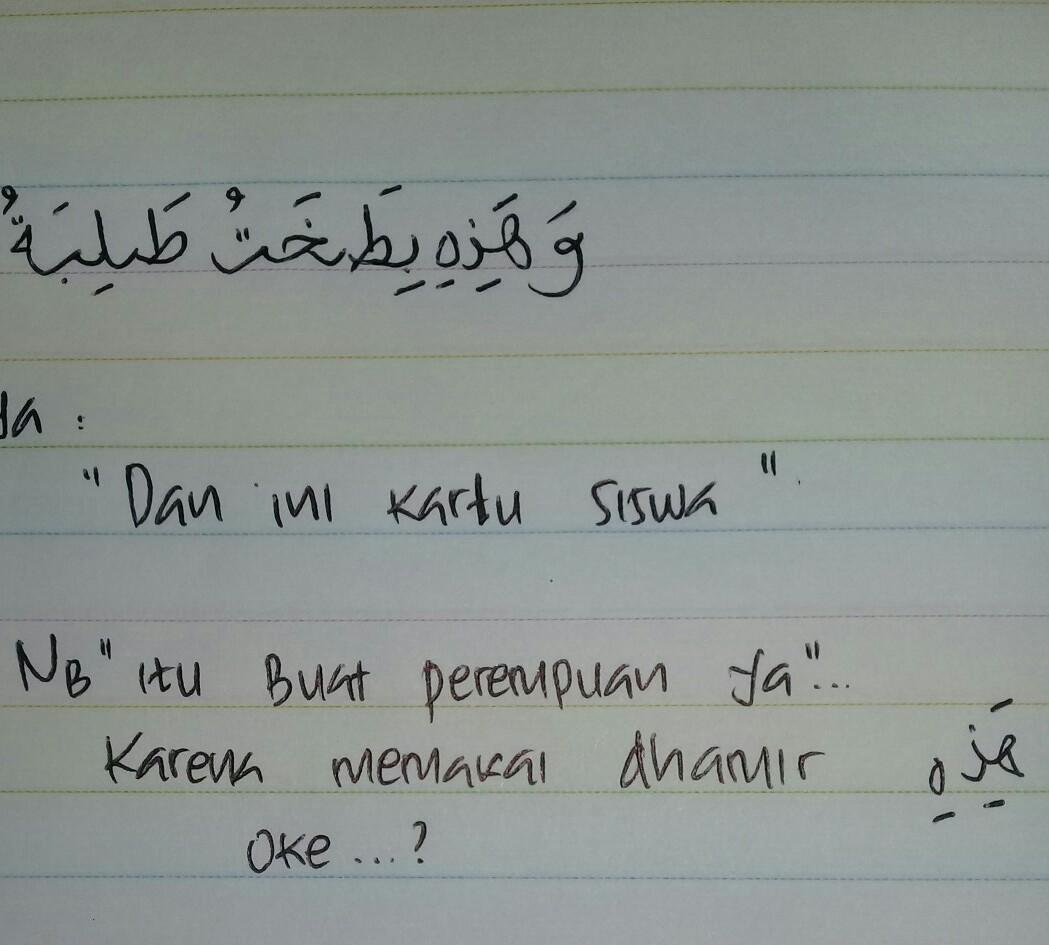 وَ هَزِهِ بِطَخَتُ طَلِبَةٌ
da :
"Dan ini kartu siswa".
NB" itu Buat perempuan ya"...
Karena memakai dhamir هَزِهِ
oke ...?